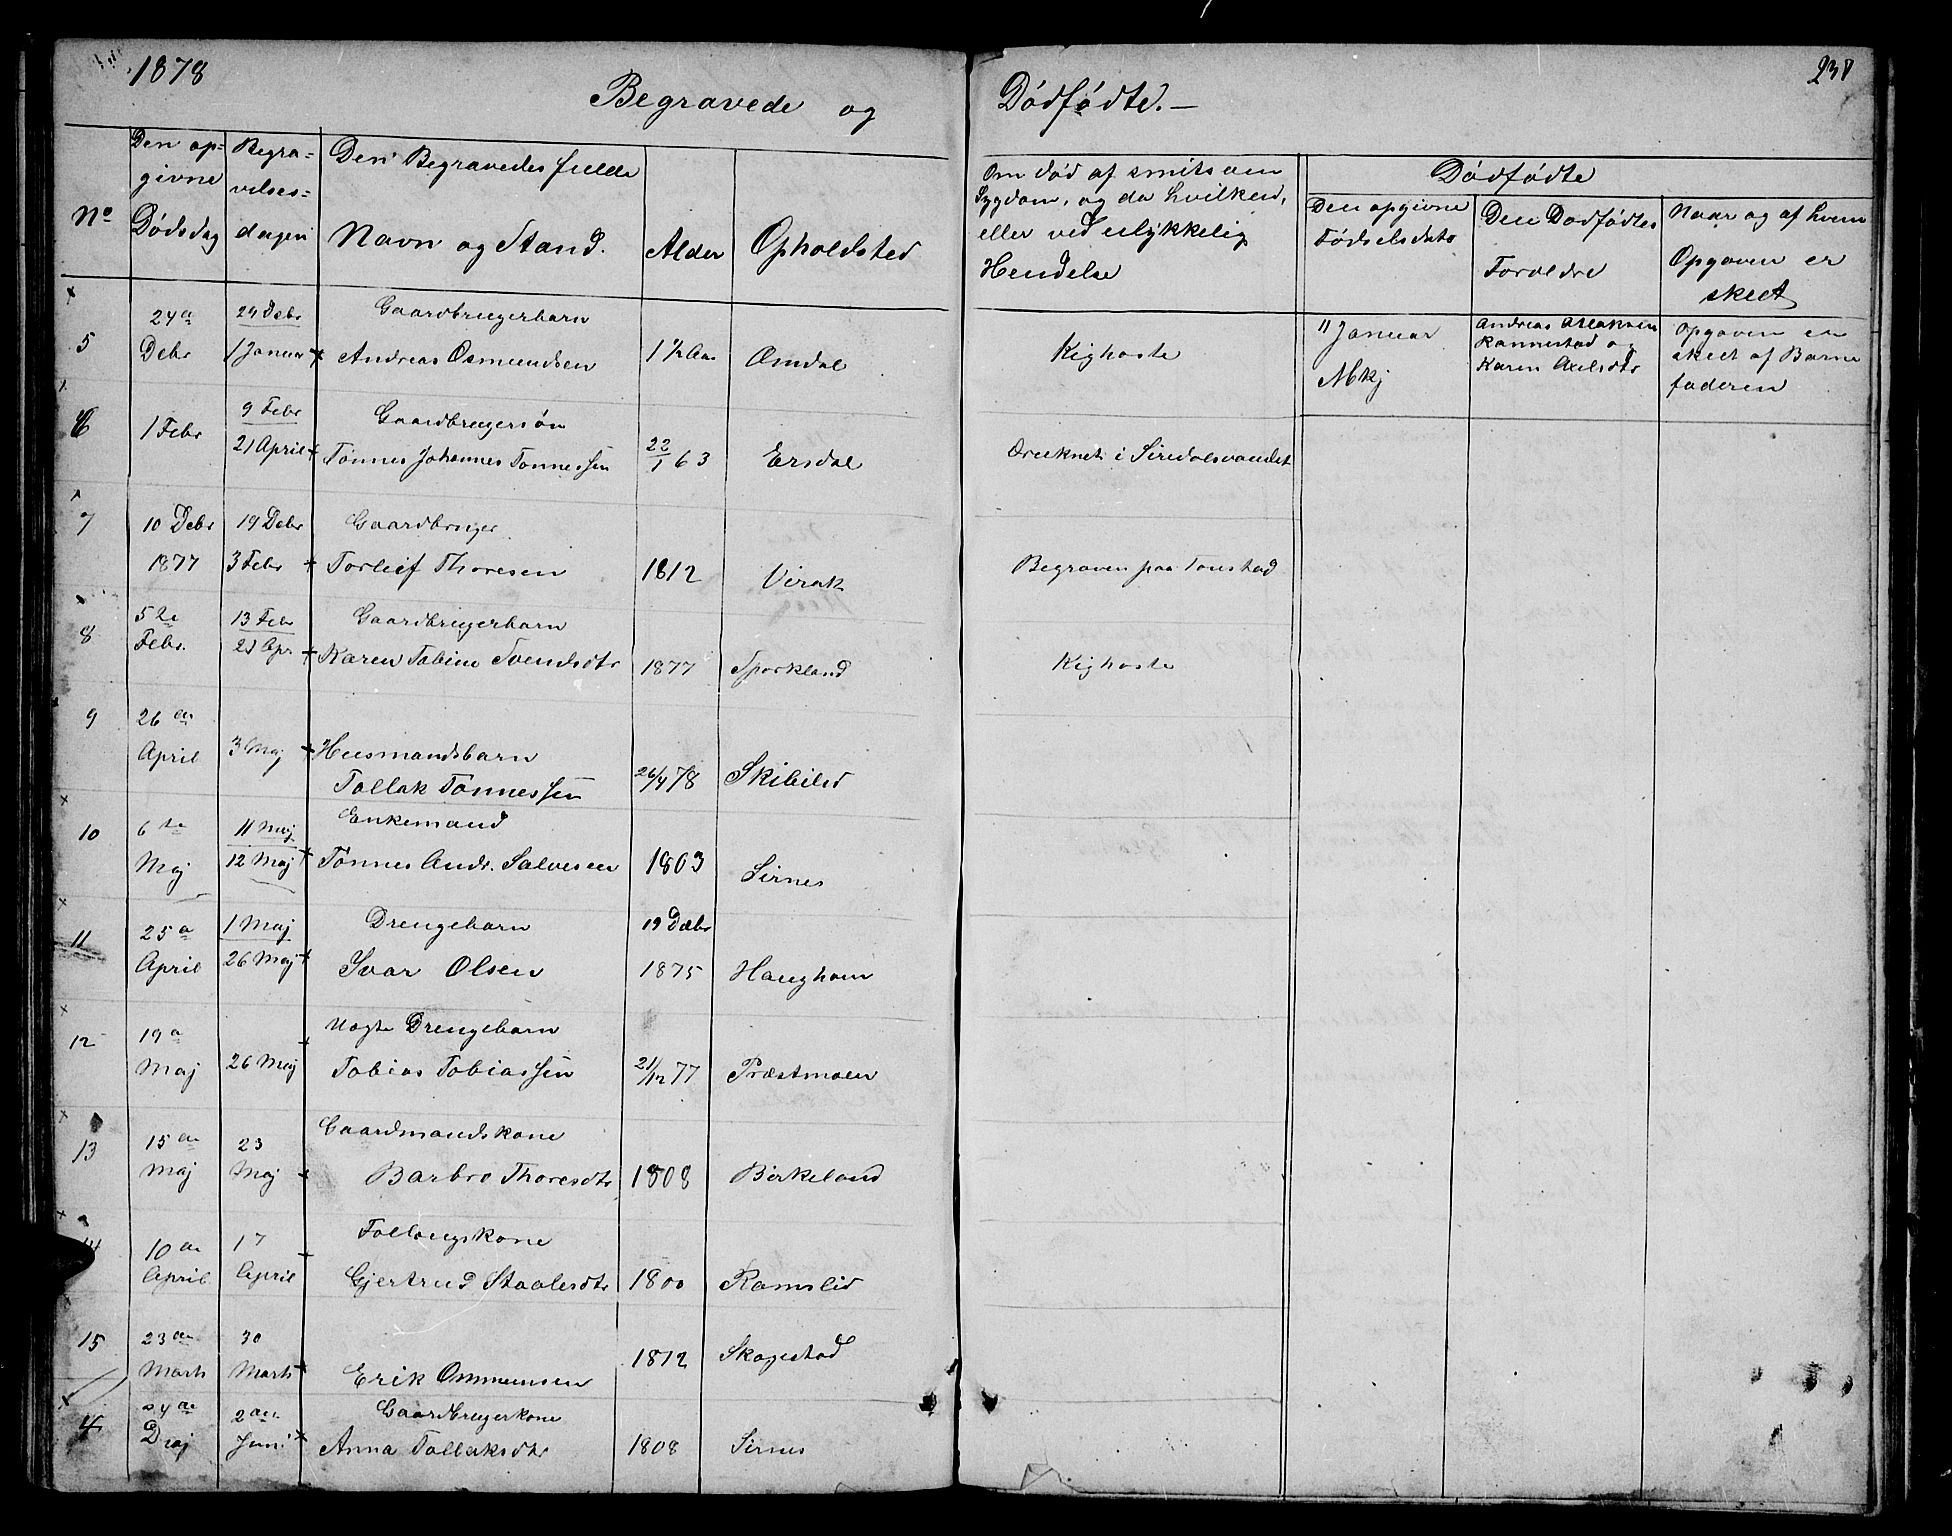 1878
238
Begravede og Dödfödte.—
No
Den op=
givne
Dødsdag
Begra=
velses=
dagen
Den Begravedes fulde
Navn og Stand.
Alder
Opholdsted
Om död af smitsom
Sygdom, og da hvilken,
eller ved ulykkelig
Hendelse
Dödfödte
Den opgivne
Födselsdato
Den Dodfödtes
Forældre
Naar og af hvem
Opgaven er
skeet
5
24de
Debr
29 Debr
1 Januar +
Gaardbrugerbarn
Andreas Osmundsen
1 1/2 Aar
Omdal
Kighoste
11 Januar
Mkj
Andreas Aslaksen
Rannestad og
Karen Axelsdtr
Opgaven er
skeet af Barne
faderen
6
1 Febr
9 Febr
21 April +
Gaardbrugersön
Tönnes Johannes Tönnessen
22/1 63
Ersdal
Druknet i Siredalsvandet
7
10 Debr
1877
19 Debr
3 Febr +
Gaardbruger
Torleif Thoresen
1812
Virak
Begraven paa Tonstad
8
5te
Febr.
13 Febr
21 Apr +
Gaardbrugerbarn
Karen Tobine Svendsdtr
1877
Sporkland
Kighoste
9
26de
April
3 Maj +
Husmandsbarn
Tollak Tönnessen
26/4 78
Skibelid
10
6te
Maj
11 Maj
12 Maj +
Enkemand
Tönnes Andr. Salvesen
1803
Sirnes
11
25de
April
1 Maj
26 Maj +
Drengebarn
Ivar Olsen
19 Debr
1875
Haughom
12
19de
Maj
26 Maj +
Uægte Drengebarn
Tobias Tobiassen
21/12 77
Præstmoen
13
15de
Maj
23
Maj +
Gaardmandskone
Barbro Thoresdtr
1808
Birkeland
14
10de
April
17
April +
Follougskone
Gjertrud Staalesdtr
1800
Ramslid
15
23de
Marts
30
Marts +
Erik Ommunsen
1812
Skogestad
24de
2den
Juni +
Gaardbrugerkone
Anna Tollaksdtr
1808
Sirnes